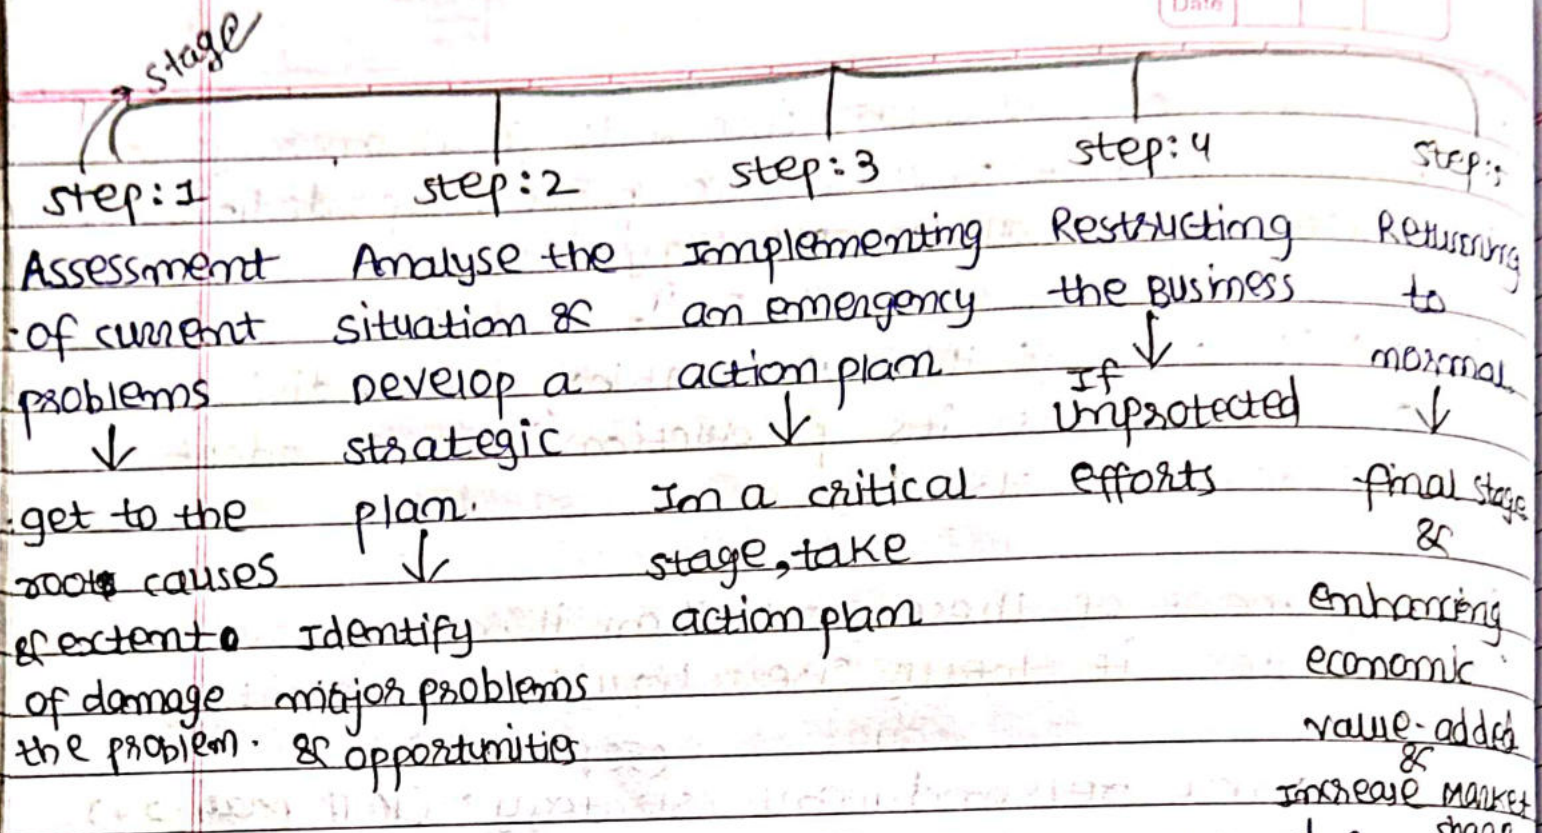 Date
stage
step:1
Assessment
of current
problems
↓
get to the
root causes
& extent
of damage
the problem.
step:2
Analyse the
situation &
Develop a
strategic
plan.
↓
Identify
major problems
& opportunities
step:3
Implementing
an emergency
action plan
↓
In a critical
stage, take
action plan
step:4
Restructing
the Business
↓
If
unprotected
efforts
step:
Returning
to
normal
↓
final stage
&
enhancing
economic
value-added
&
Increase Market
share